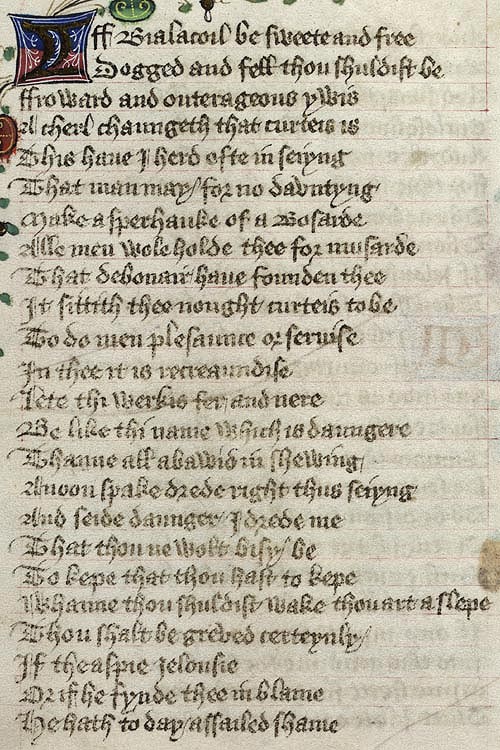 Yff Bialacoil be sweete and free
Dogged and fell thou shuldist be
ffroward and outerageous ywis
A cherl chaungeth that curteis is
This haue I herd ofte in seiyng
That man may / for no dauntyng
Make a sperhauke of a Bosarde
Alle men wole holde thee for musarde
That debonair haue founden thee
It sittith thee nought curteis to be
To do men plesaunce or seruise
In thee it is recreaundise
Lete thi werkis fer and nere
Be like thi name which is daungere
Thanne all abawid in shewing
Anoon spake drede right thus seiyng
And seide daunger / I drede me
That thou ne wolt bisy / be
To kepe that thou hast to kepe
Whanne thou shuldist wake thou art a slepe
Thou shalt be greued certeynly /
If the aspie Jelousie
Or if he fynde thee in blame
He hath to day / assailed shame